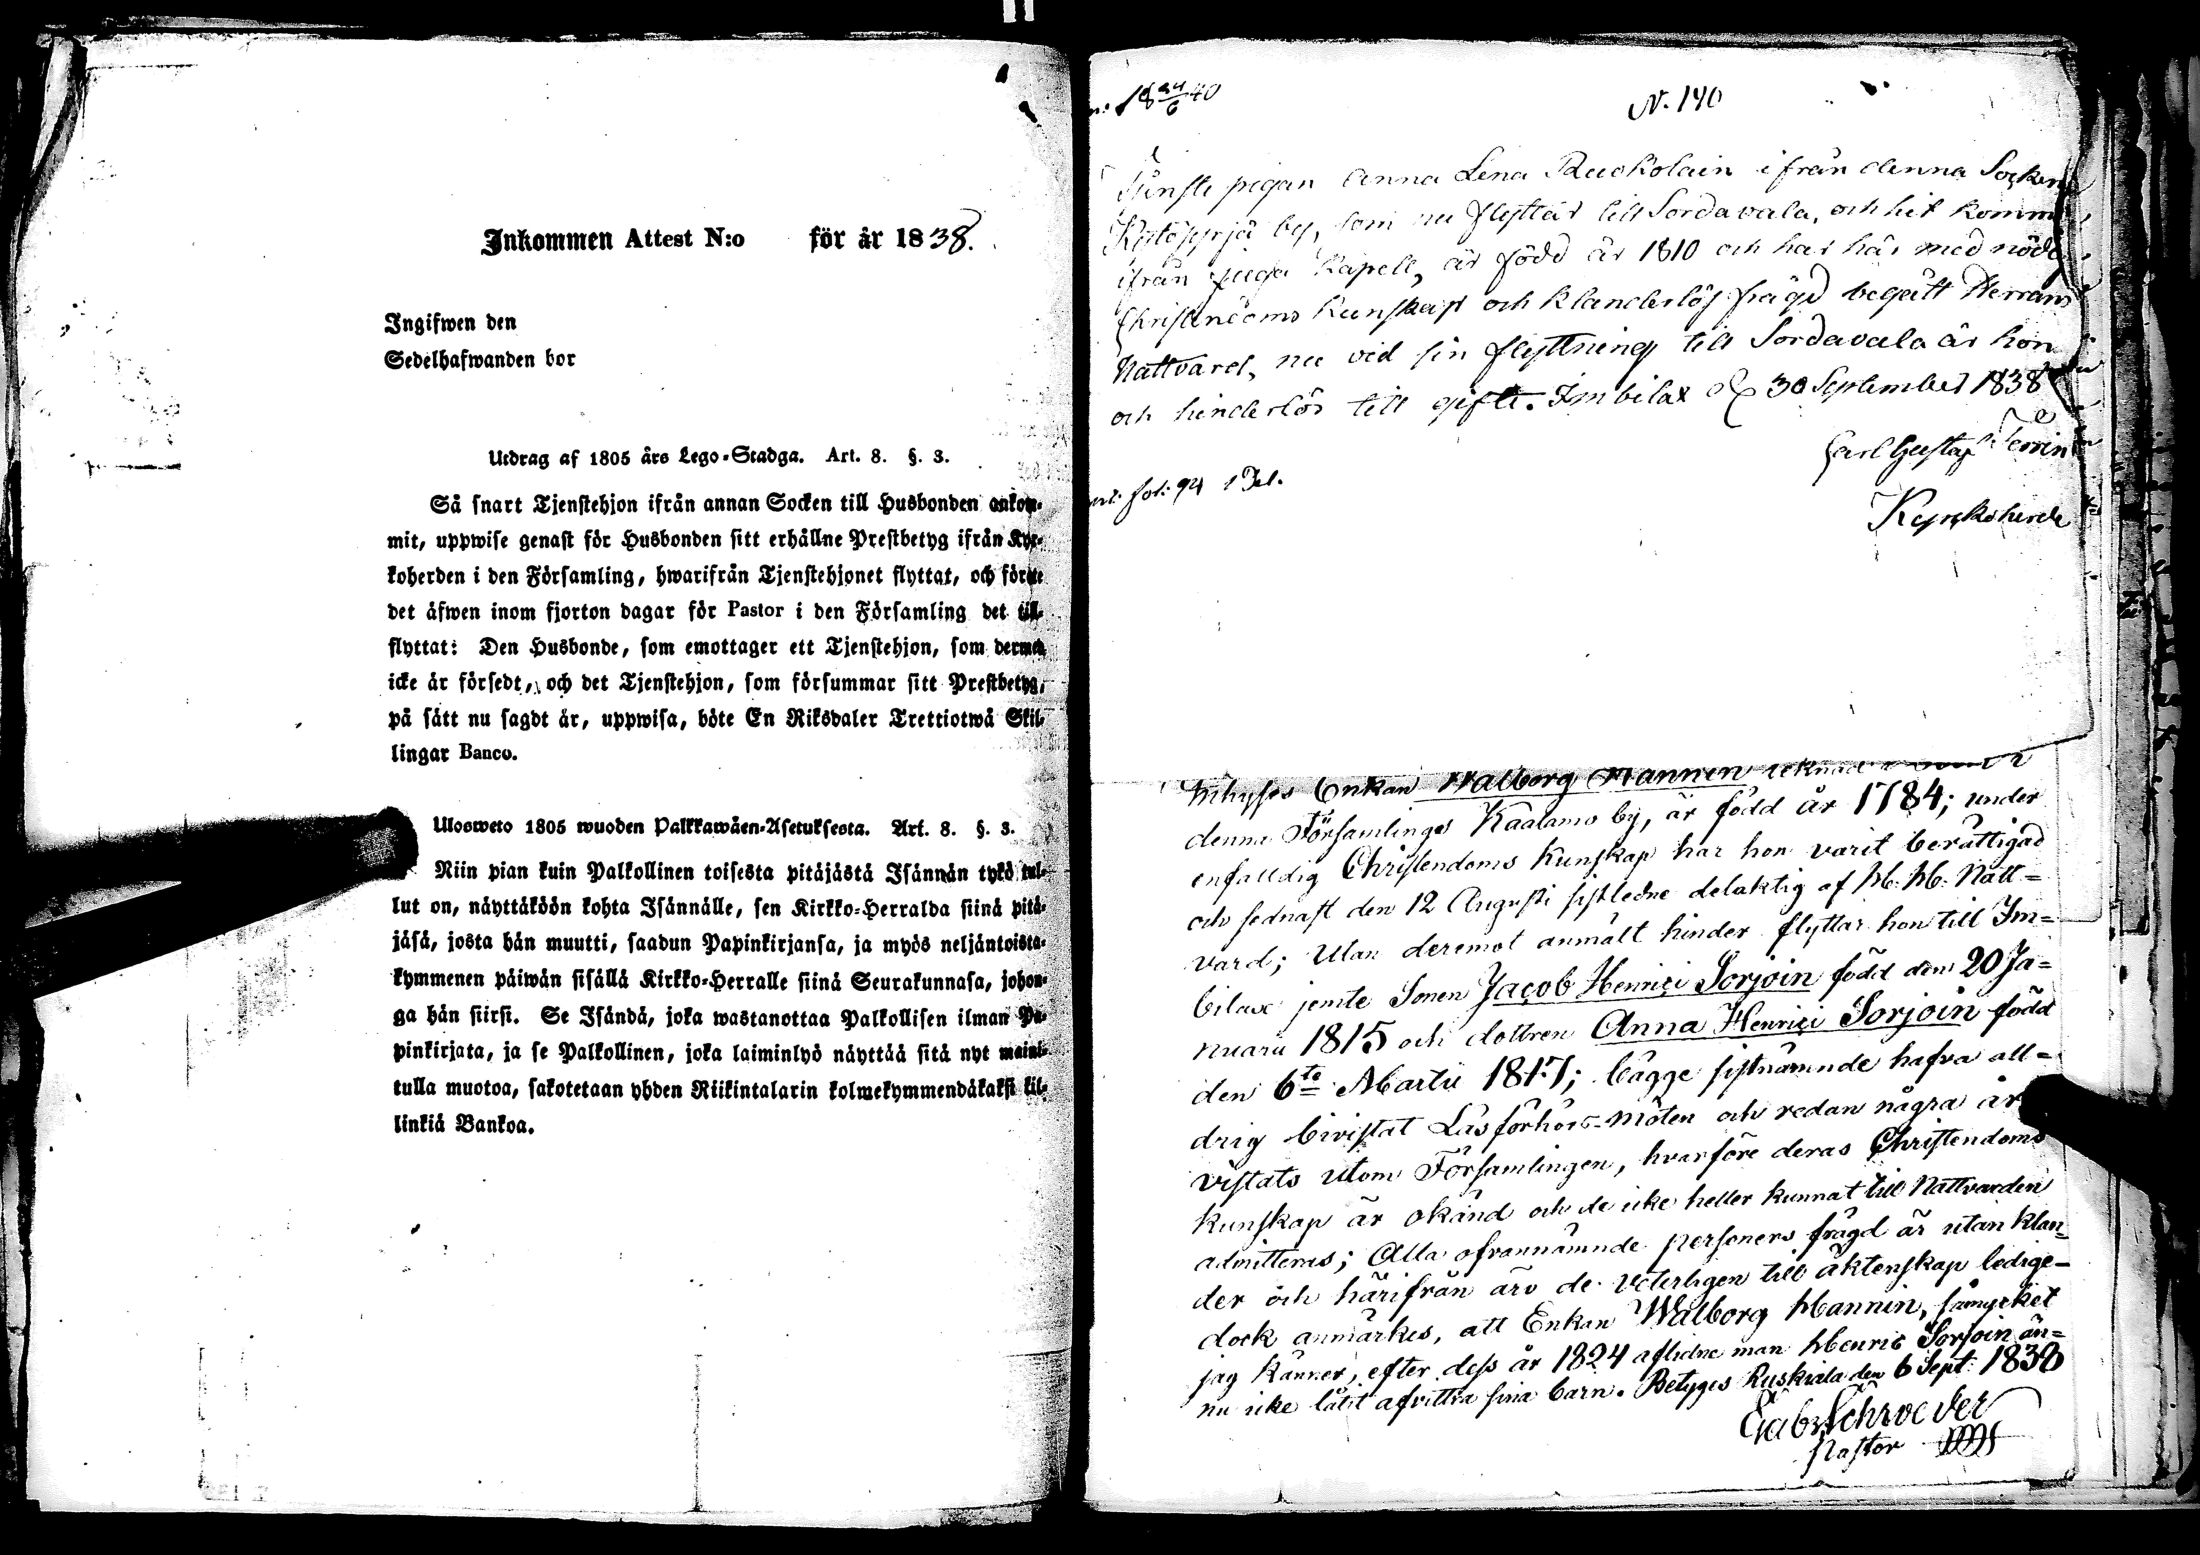 Inkommen Attest N:o för år 1838.
Ingifwen den
Sedelhafwanden bor
Utdrag af 1805 års Lego-Stadga. Art. 8. §. 3.
Så snart Tjenstehjon ifrån annan Socken till Husbonden ankom-
mit, uppwise genast för Husbonden sitt erhållne Prestbetyg ifrån Kyr-
koherden i den Församling, hwarifrån Tjenstehjonet flyttat, och förete
det äfwen inom fjorton dagar för Pastor i den Församling det till-
flyttat: Den Husbonde, som emottager ett Tjenstehjon, som dermed
icke är försedt, och det Tjenstehjon, som försummar sitt Prestbetyg,
på sätt nu sagdt är, uppwisa, böte En Riksdaler Trettiotwå Skil-
lingar Banco.
Ulosweto 1805 wuoden Palkkawäen-Asetuksesta. Art. 8. §. 3.
Niin pian kuin Palkollinen toisesta pitäjästä Isännän tykö tul-
lut on, näyttäköön kohta Isännälle, sen Kirkko-Herralda siinä pitä-
jäsä, josta hän muutti, saadun Papinkirjansa, ja myös neljäntoista-
kymmenen päiwän sisällä Kirkko-Herralle siinä Seurakunnasa, johon-
ga hän siirsi. Se Isändä, joka wastanottaa Palkollisen ilman Pa-
pinkirjata, ja se Palkollinen, joka laiminlyö näyttää sitä nyt maini-
tulla muotoa, sakotetaan yhden Riikintalarin kolmekymmendäkaksi kil-
linkiä Bankoa.
18 24/6 40
N. 140
pigan Anna Lena Ruokolain ifrån denna Sockens
by, som nu flyttar till Sordavala, och hit kommit
ifrån Kapell, är född år 1810 och har här med nödig
Christendoms Kunskap och klanderlös frägd begått Herrans
Nattvard, nu vid sin flyttning till Sordavala är hon
och hinderlös till gifte. Imbilax d. 30 September 1838
Carl Gustaf
Kyrkoherde
fol: 94 1 Del.
Enkan Walborg Mannin
denna Församlings Kaalamo by, är född år 1784; under
enfalldig Christendoms Kunskap har hon varit berättigad
och sednast den 12 Augusti sistledne delaktig af H. H. Natt=
vard; Utan deremot anmält hinder flyttar hon till Im=
bilax jemte Sonen Jacob Henrici Sorjoin född den 20 Ja=
nuarii 1815 och dottren Anna Henrici Sorjoin född
den 6te Martii 1817; bägge sistnämnde hafva all=
drig bivistat Läsförhörs-möten och redan några år
vistats utom Församlingen, hvarföre deras Christendoms
kunskap är okänd och de icke heller kunnat till Nattvarden
admitteras; Alla ofvannämnde personers frägd är utan klan=
der och härifrån äro de veterligen till äktenskap lediga -
dock anmärkes, att Enkan Walborg Mannin, såmycket
jag känner, efter dess år 1824 aflidne man Henric Sorjoin än=
nu icke låtit afvittra sina barn. Betyges Ruskiala den 6 Sept. 1838
Gabr. Schroeder
Pastor